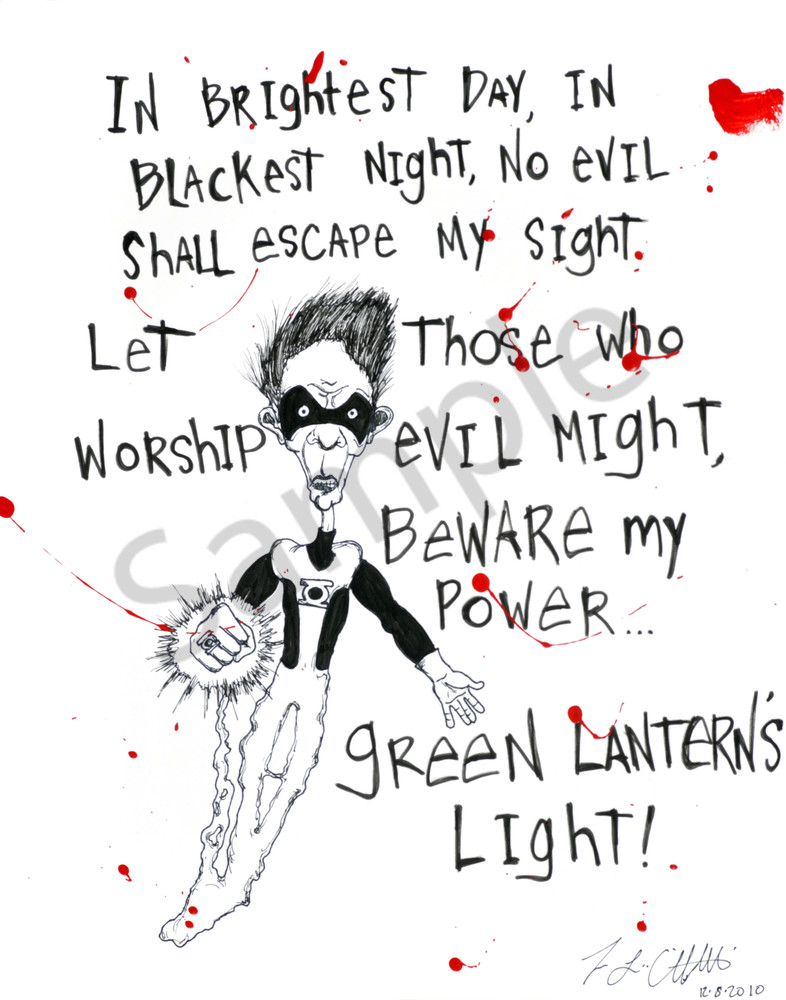 In Brightest Day, In
Blackest Night, No Evil
Shall escape My Sight.
Let Those who
Worship evil Might,
Beware my
Power...
green Lantern's
Light!
Sample
12.8.2010